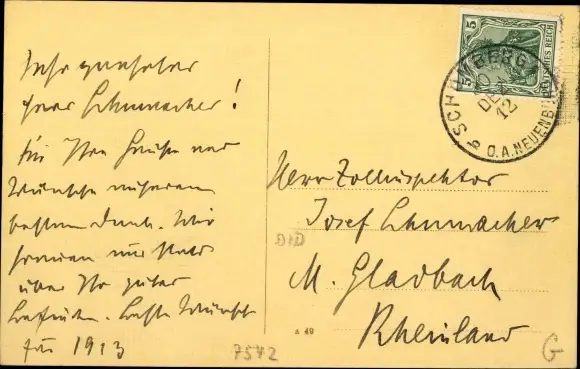 Sehr geehrter
Herr Schumacher!
Für Ihre Grüße und
Wünsche unseren
besten Dank. Wir
freuen uns stets
über Ihr gutes
Befinden. Beste Wünsche
für 1913
Herrn Zollinspektor
Josef Schumacher
M. Gladbach
Rheinland
5 5
DEUTSCHES REICH
SCHÖMBERG
DEZ
12
O.A. NEUENB
DID
A 49
7572
G